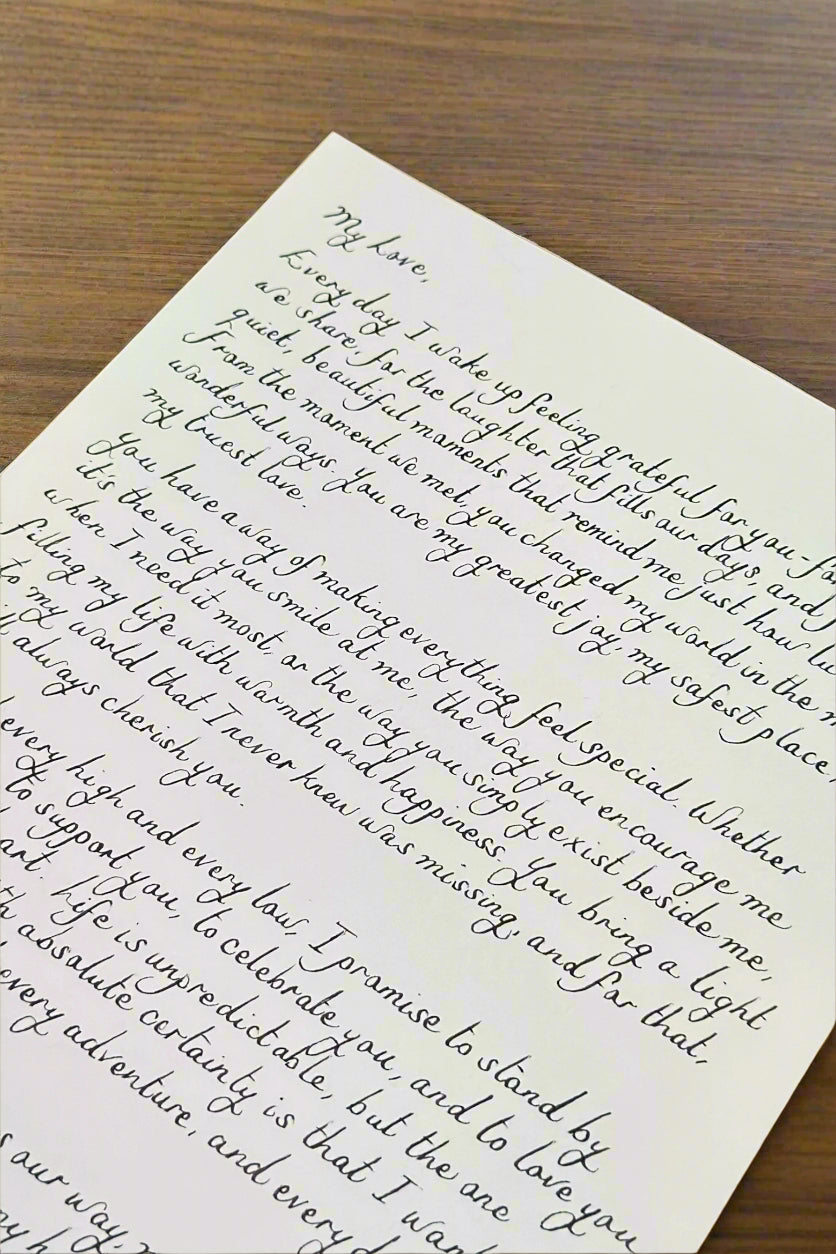 My Love,
Every day I wake up feeling grateful for you-for
we share, for the laughter that fills our days, and f
quiet, beautiful moments that remind me just how lu
From the moment we met, you changed my world in the m
wonderful ways. You are my greatest joy, my safest place,
my truest love.
You have a way of making everything feel special. Whether
it's the way you smile at me, the way you encourage me
when I need it most, or the way you simply exist beside me,
filling my life with warmth and happiness. You bring a light
to my world that I never knew was missing, and for that,
always cherish you.
every high and every low, I promise to stand by
to support you, to celebrate you, and to love you
art. Life is unpredictable, but the one
th absolute certainty is that I wan
every adventure, and every d
s our way,
my h